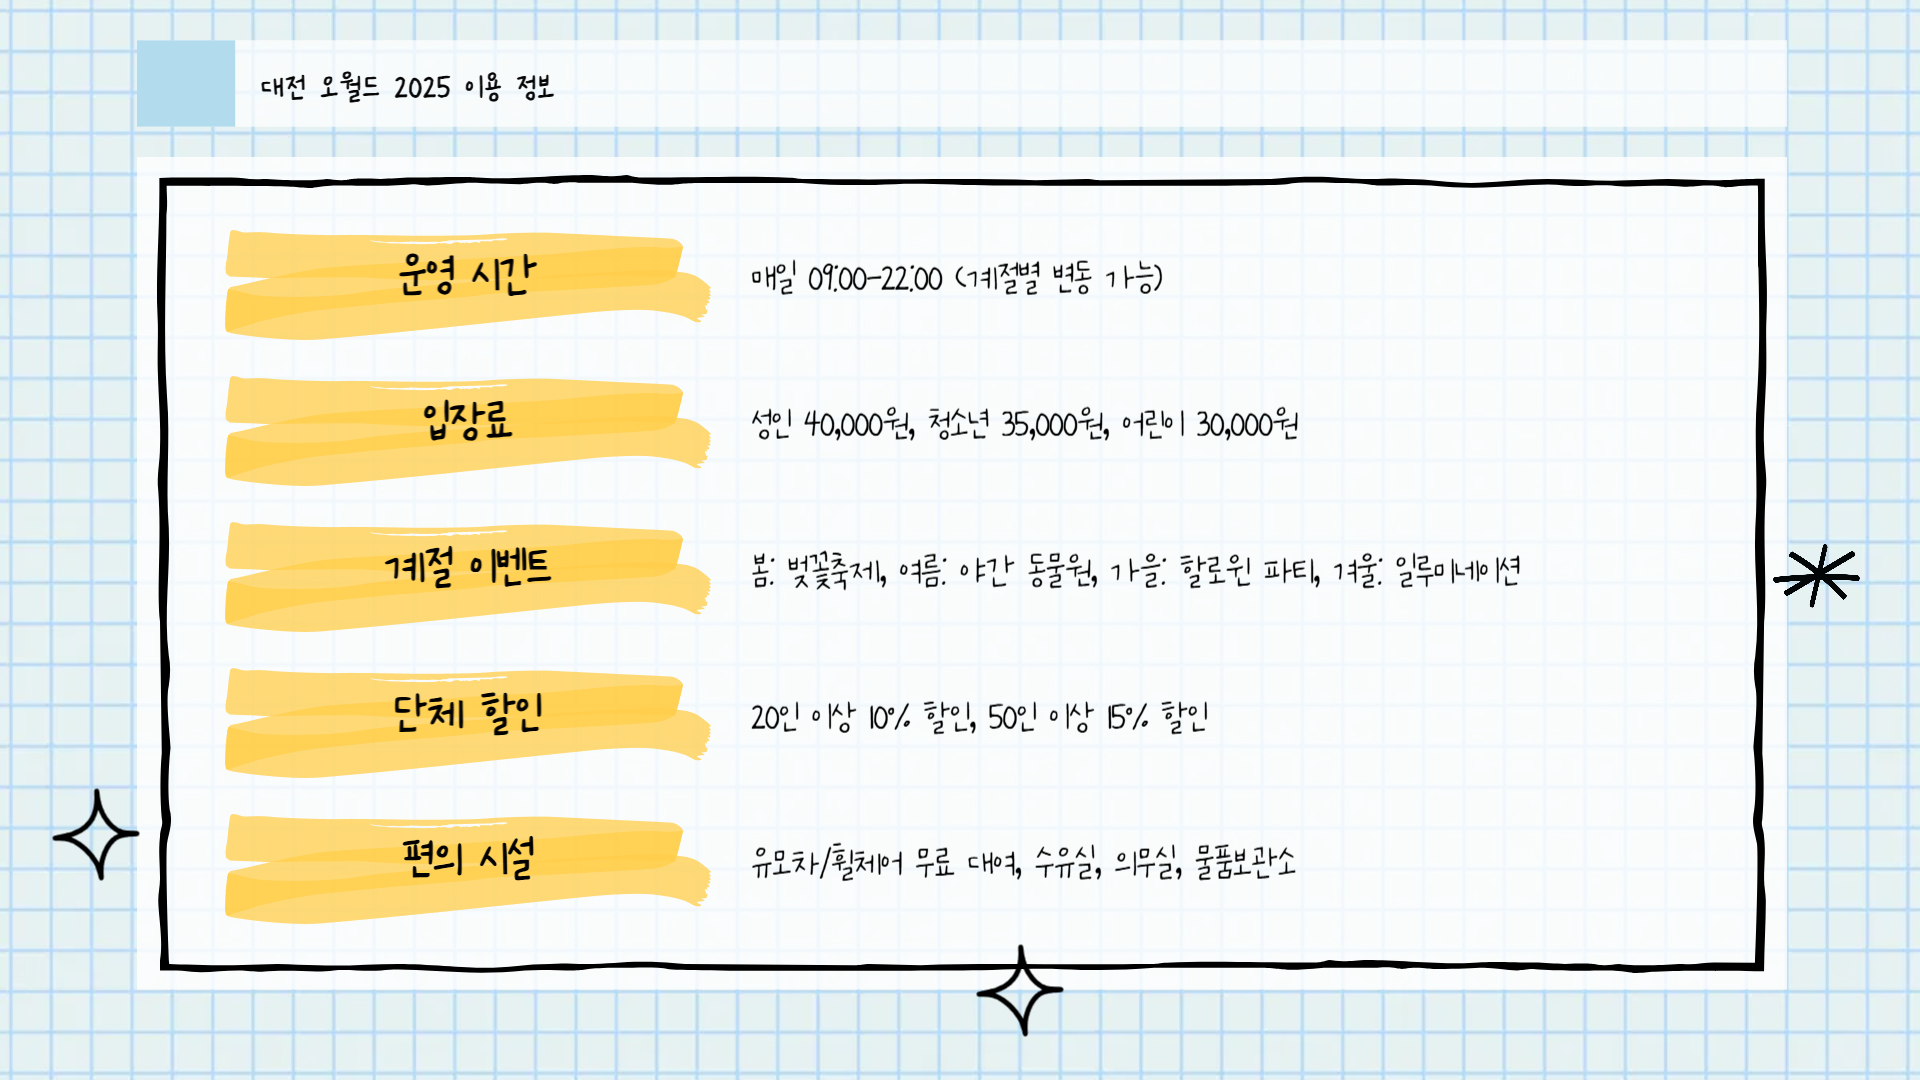 대전 오월드 2025 이용 정보
운영 시간
매일 09:00-22:00 (계절별 변동 가능)
입장료
성인 40,000원, 청소년 35,000원, 어린이 30,000원
계절 이벤트
봄: 벚꽃축제, 여름: 야간 동물원, 가을: 할로윈 파티, 겨울: 일루미네이션
단체 할인
20인 이상 10% 할인, 50인 이상 15% 할인
편의 시설
유모차/휠체어 무료 대여, 수유실, 의무실, 물품보관소